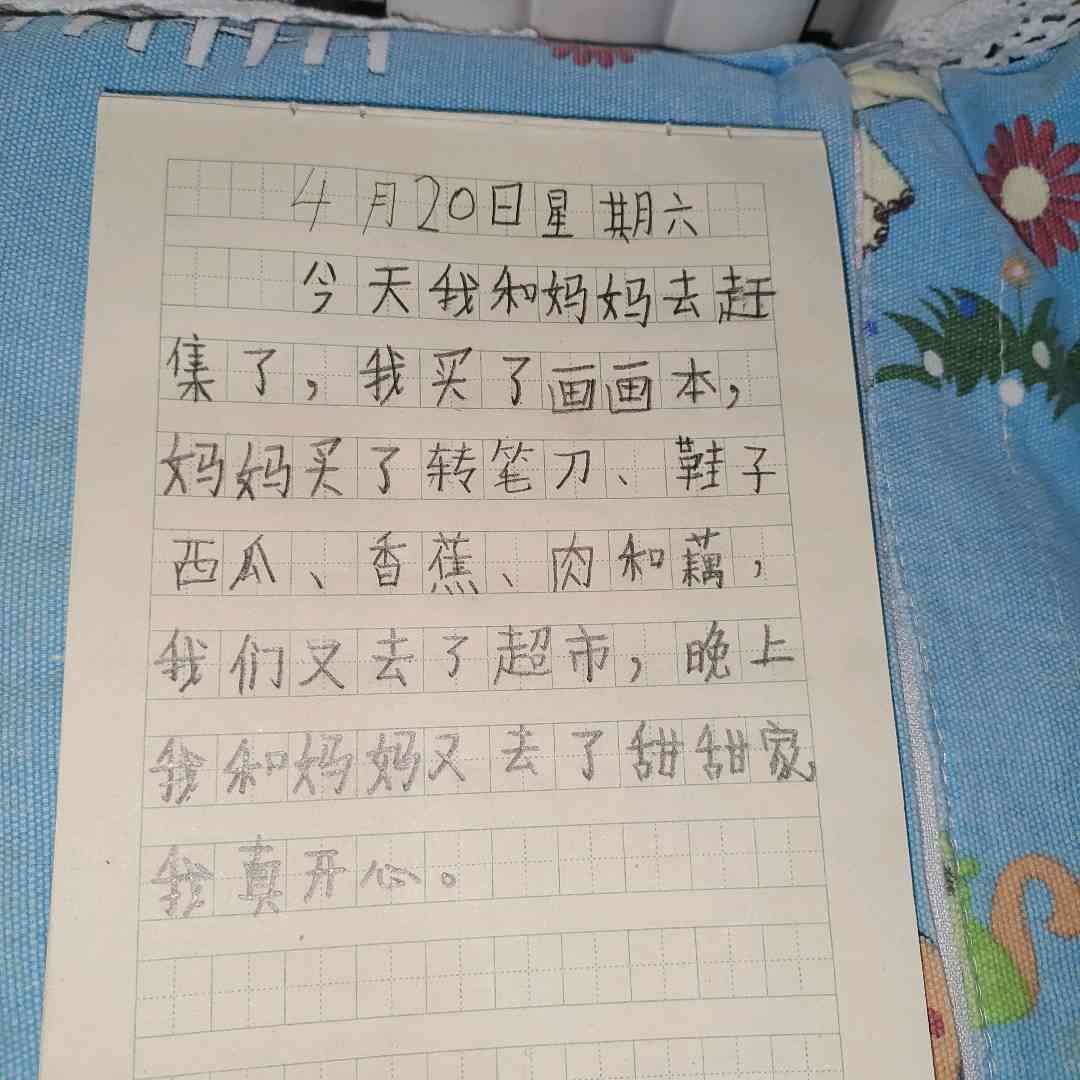 4月20日星期六
今天我和妈妈去赶
集了,我买了画画本,
妈妈买了转笔刀、鞋子
西瓜、香蕉、肉和藕,
我们又去了超市,晚上
我和妈妈又去了甜甜家
我真开心。